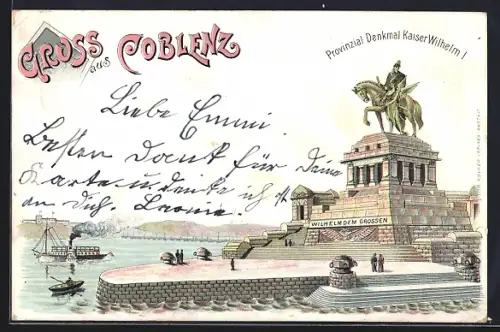 Gruss
aus
Coblenz
Provinzial Denkmal Kaiser Wilhelm I
Liebe Emmi
Besten Dank für Deine
Karte u. denke ich
an Dich. Leonie.
WILHELM DEM GROSSEN